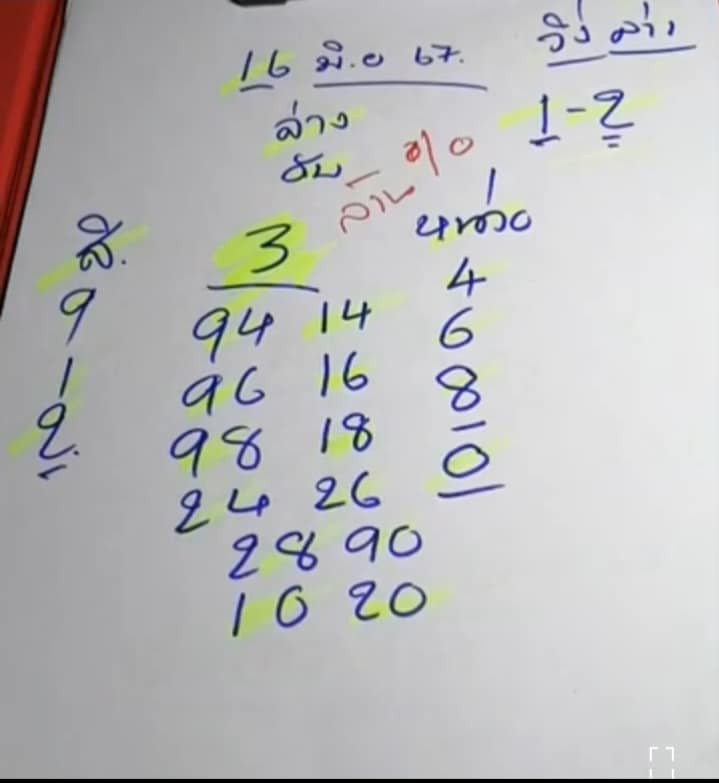 16 มิ.ย 67. วิ่งล่าง
ล่าง 1-2
ล้าน %
สิ. 3 หน่วย
9 94 14 4
1 96 16 6
2. 98 18 8
24 26 0
28 90
10 20